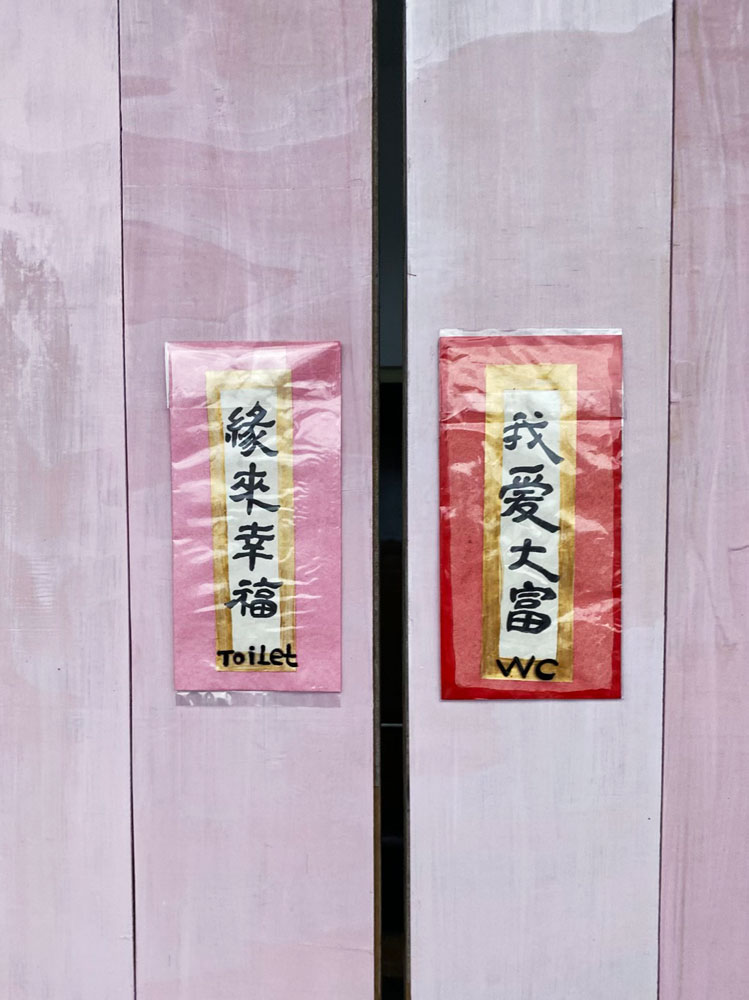 緣來幸福
Toilet
我愛大富
WC